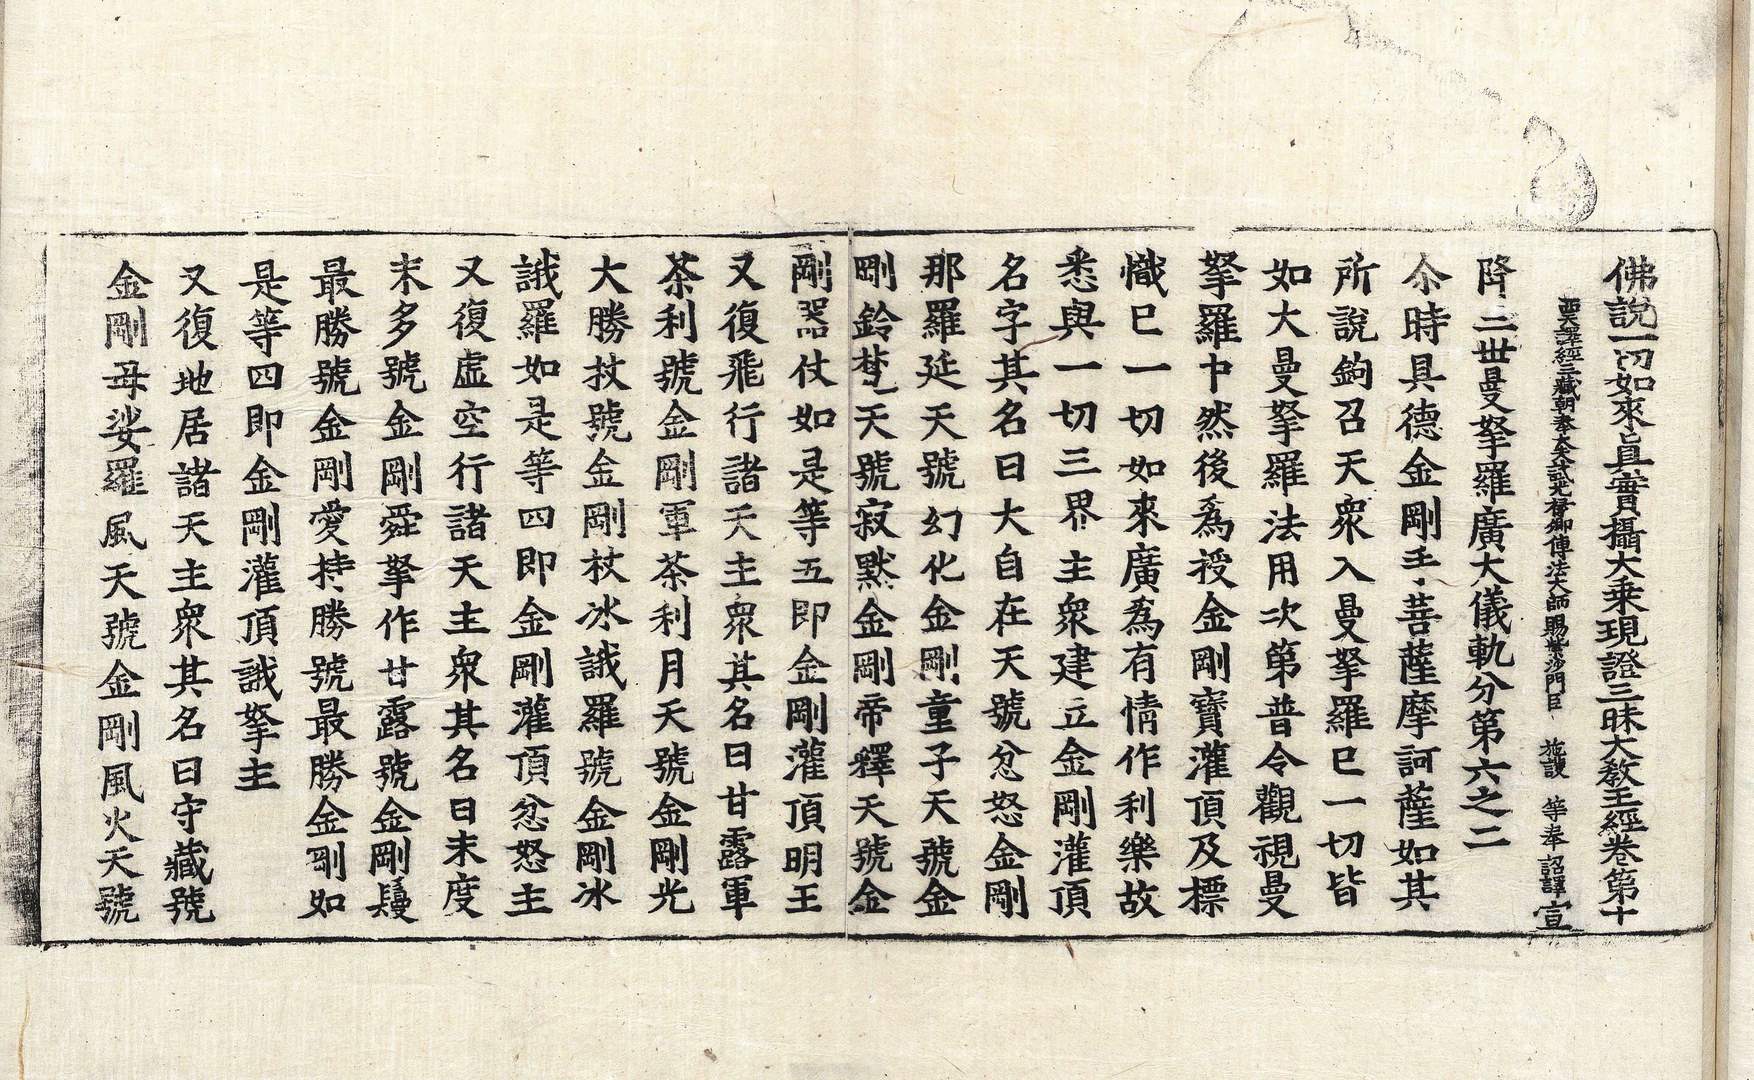 佛說一切如來眞實攝大乗現證三昧大教王經卷第十
西天譯經三藏朝奉大夫試光禄卿傳法大師賜紫沙門臣 施護 等奉 詔譯 宣
降三世曼拏羅廣大儀軌分第六之二
尒時具德金剛手菩薩摩訶薩如其
所說鉤召天衆入曼拏羅已一切皆
如大曼拏羅法用次第普令觀視曼
拏羅中然後爲授金剛寶灌頂及標
幟已一切如來廣爲有情作利樂故
悉與一切三界主衆建立金剛灌頂
名字其名曰大自在天號忿怒金剛
那羅延天號幻化金剛童子天號金
剛鈴梵天號寂默金剛帝釋天號金
剛器仗如是等五即金剛灌頂明王
又復飛行諸天主衆其名曰甘露軍
茶利號金剛軍茶利月天號金剛光
大勝杖號金剛杖冰誐羅號金剛冰
誐羅如是等四即金剛灌頂忿怒主
又復虚空行諸天主衆其名曰末度
末多號金剛舜拏作甘露號金剛鬘
最勝號金剛愛持勝號最勝金剛如
是等四即金剛灌頂誐拏主
又復地居諸天主衆其名曰守藏號
金剛母娑羅風天號金剛風火天號